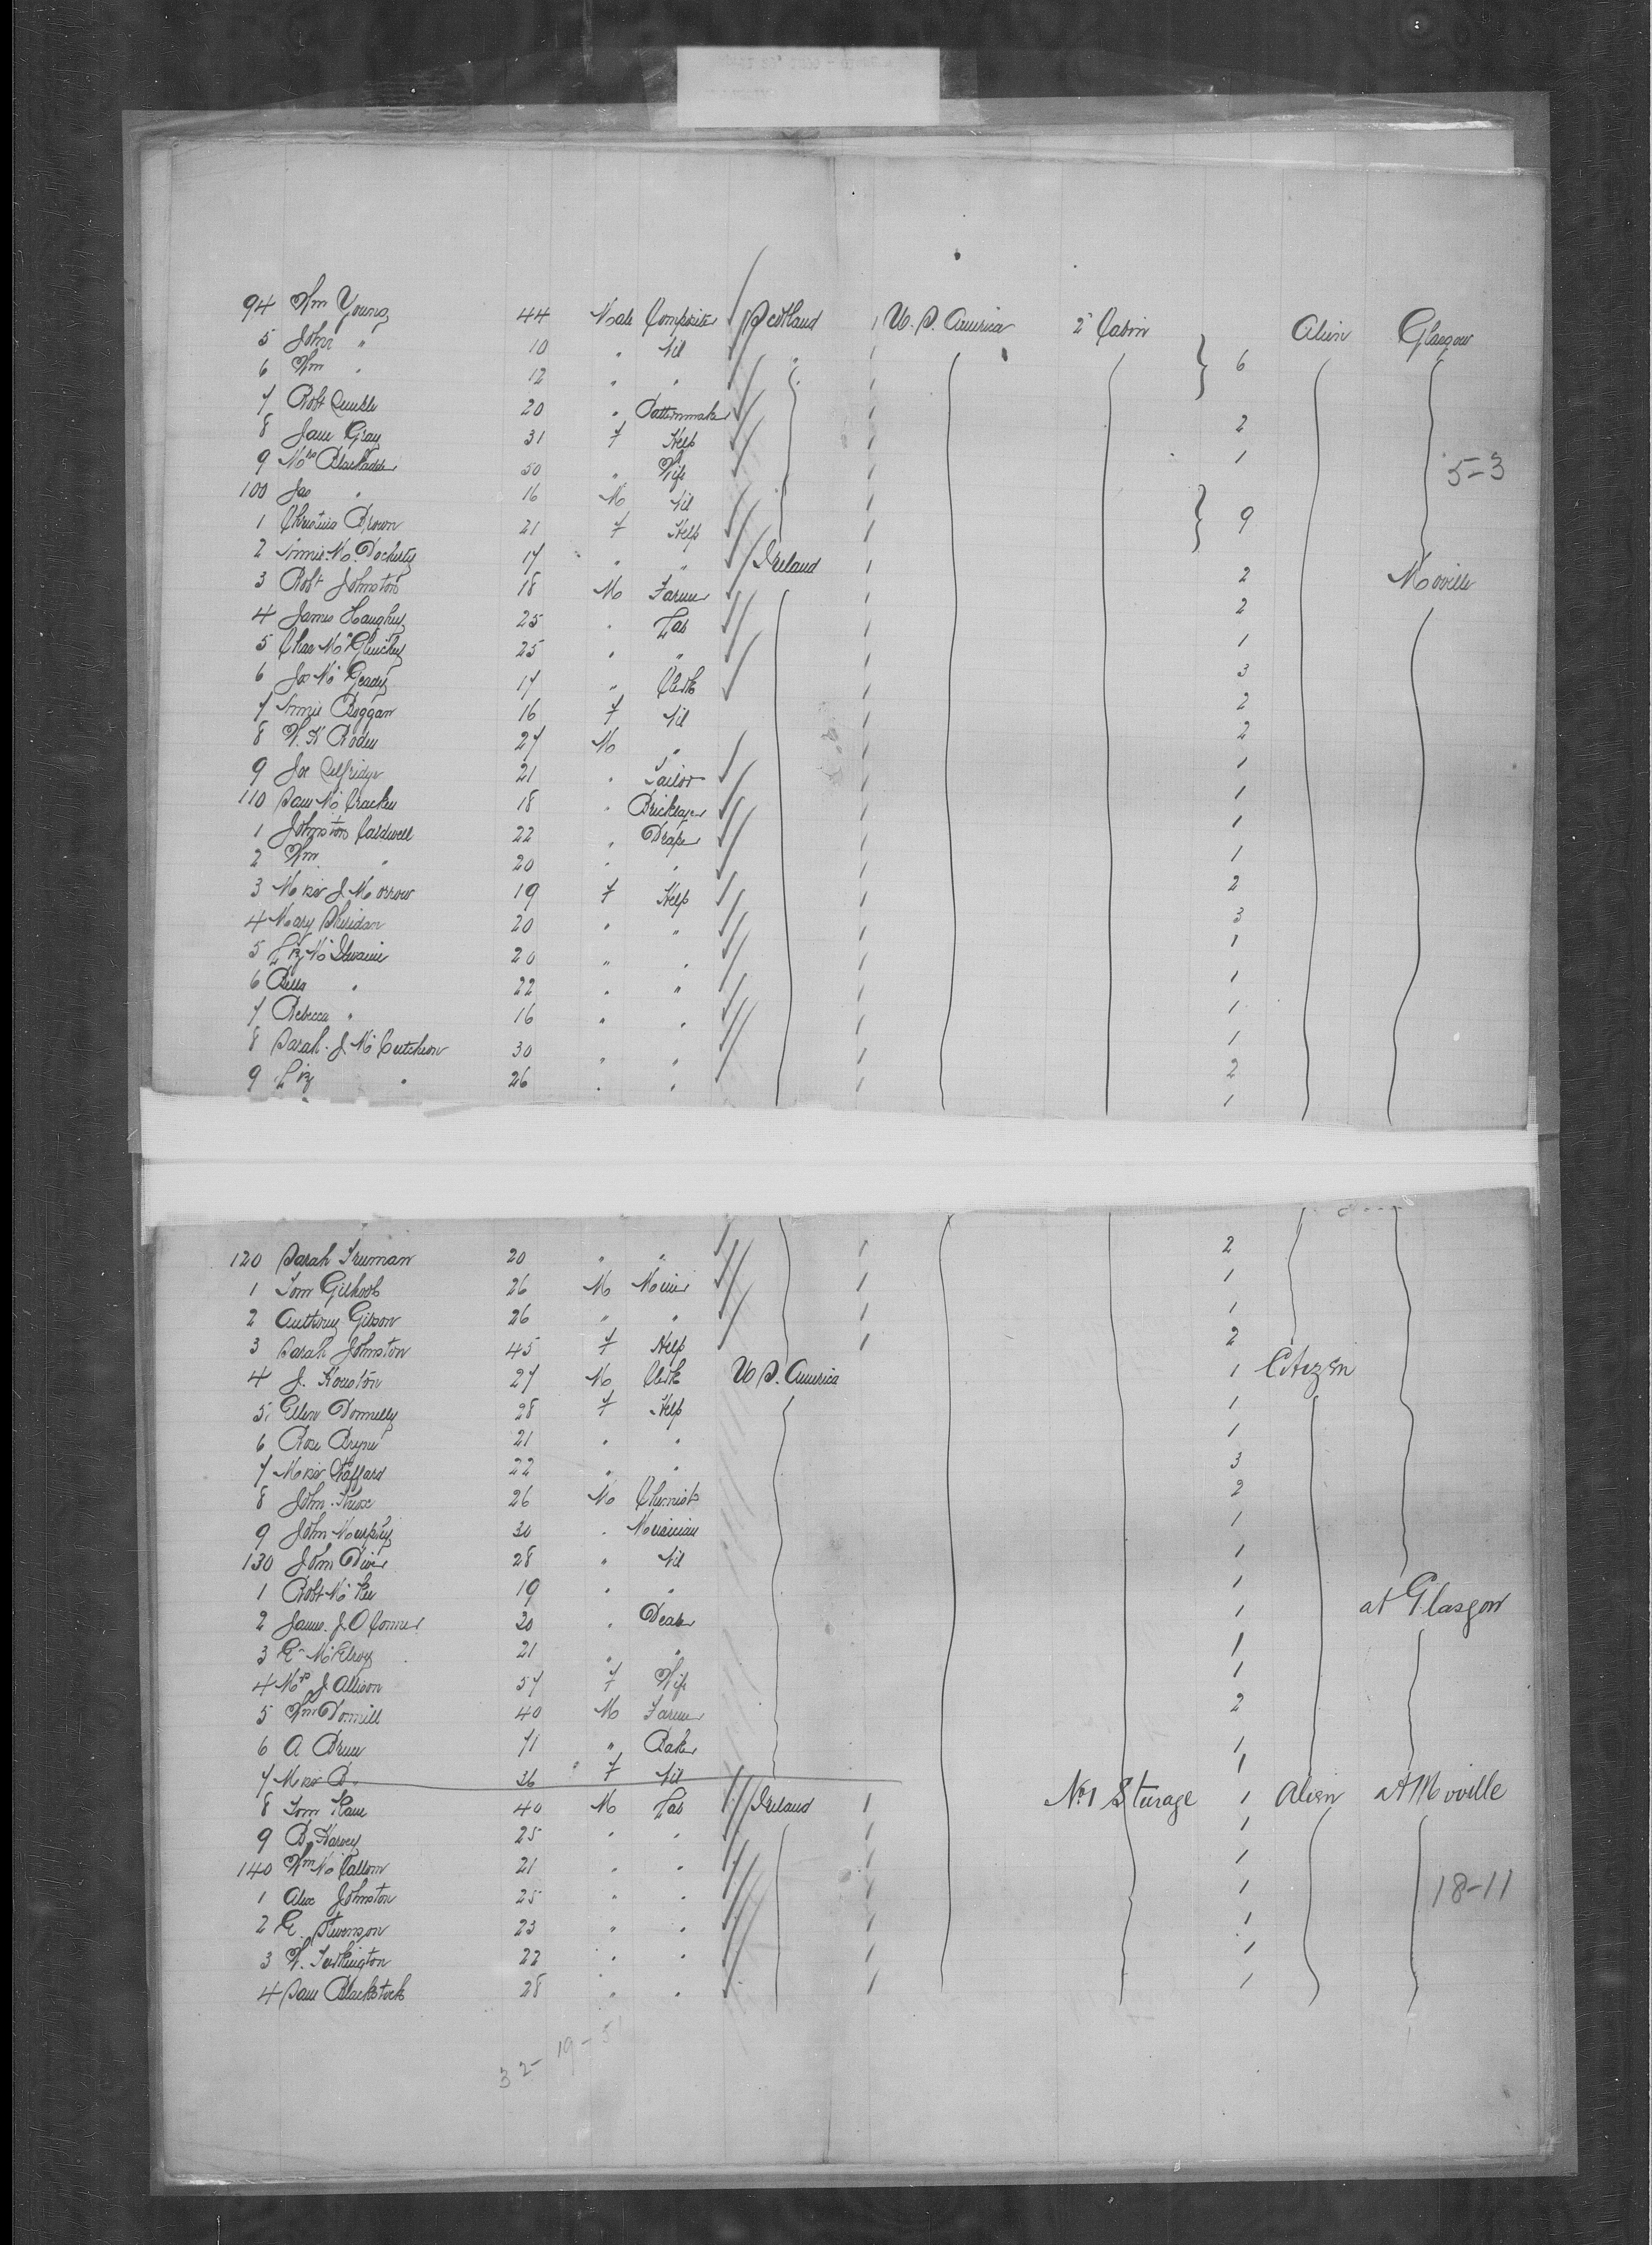 94 Wm Young 44 Male Compositor Scotland 1 U.S. America 2 Cabin Alien Glasgow
5 John " 10 " Nil 1 6
6 Wm " 12 " " 1
7 Robt 20 " Patternmaker 1 2
8 Jane Gray 31 F Help 1 1
9 Mrs Blackadder 50 " Wife 5-3
100 Jas " 16 M Nil 1 9
1 Christina Brown 21 F Help 1
2 Annie McDocherty 17 " " Ireland 1 2 Moville
3 Robt Johnston 18 M Farmer 1 2
4 James Haughey 25 " Lab 1 1
5 Chas McGlinchey 25 " " 1 3
6 Jas McGeady 17 " Clerk 1 2
7 Annie Boggan 16 F Nil 1 2
8 W. K Roden 27 M " 1 1
9 Joe Selfridge 21 " Tailor 1 1
110 Sam McCracken 18 " Bricklayer 1 1
1 Johnston Caldwell 22 " Draper 1 1
2 Wm " 20 " " 1 2
3 Miss J. Morrow 19 F Help 1 3
4 Mary Sheridan 20 " " 1 1
5 Liz McIlwaine 20 " " 1 1
6 Bella " 22 " " 1 1
7 Rebecca " 16 " " 1 1
8 Sarah. J. McCutcheon 30 " " 1 2
9 Liz " 26 " " 1 1
120 Sarah Truman 20 " " 1 2
1 Tom 26 M Miner 1 1
2 Anthony Gibson 26 " " 1 1
3 Sarah Johnston 45 F Help 1 2
4 J. Houston 27 M Clerk U S. America 1 Citizen
5 Ellen Donnelly 28 F Help 1
6 Rose Bryne 21 " " 1
7 Miss Staffard 22 " " 3
8 John 26 M Chemist 2
9 John Murphy 30 " Musician 1
130 John Diver 28 " Nil 1
1 Robt McKee 19 " " 1 at Glasgow
2 James. J. O Connor 30 " Dealer 1
3 E. McElroy 21 " " 1
4 Mrs J. Allison 57 F Wife 1
5 Wm 40 M Farmer 2
6 A 71 " Baker 1
7 Miss B " 36 F Nil 1
8 Tom Kane 40 M Lab Ireland 1 No 1 Steerage 1 Alien at Moville
9 B. Harvey 25 " " 1 1
140 Wm McCallum 21 " " 1 1
1 Alex Johnston 25 " " 1 1 18-11
2 E. Stevenson 23 " " 1 1
3 W. Turkington 22 " " 1 1
4 Sam Blackstock 28 " " 1 1
32- 19-51